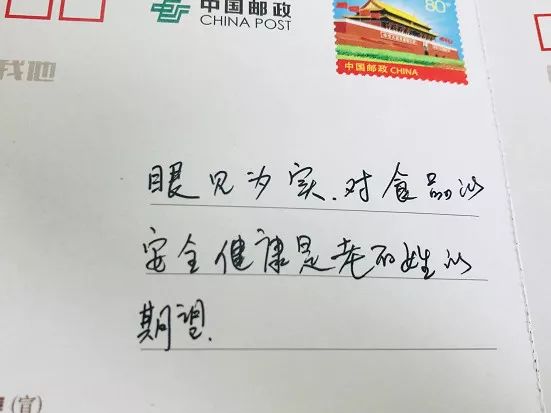 中国邮政
CHINA POST
80分
中国邮政 CHINA
我他
眼见为实.对食品的
安全健康是老百姓的
期望.
(宣)